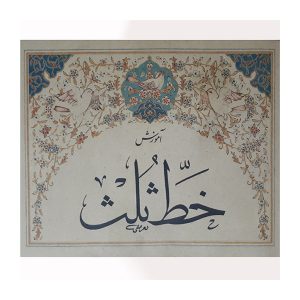 آموزش
خطّ ثُلث